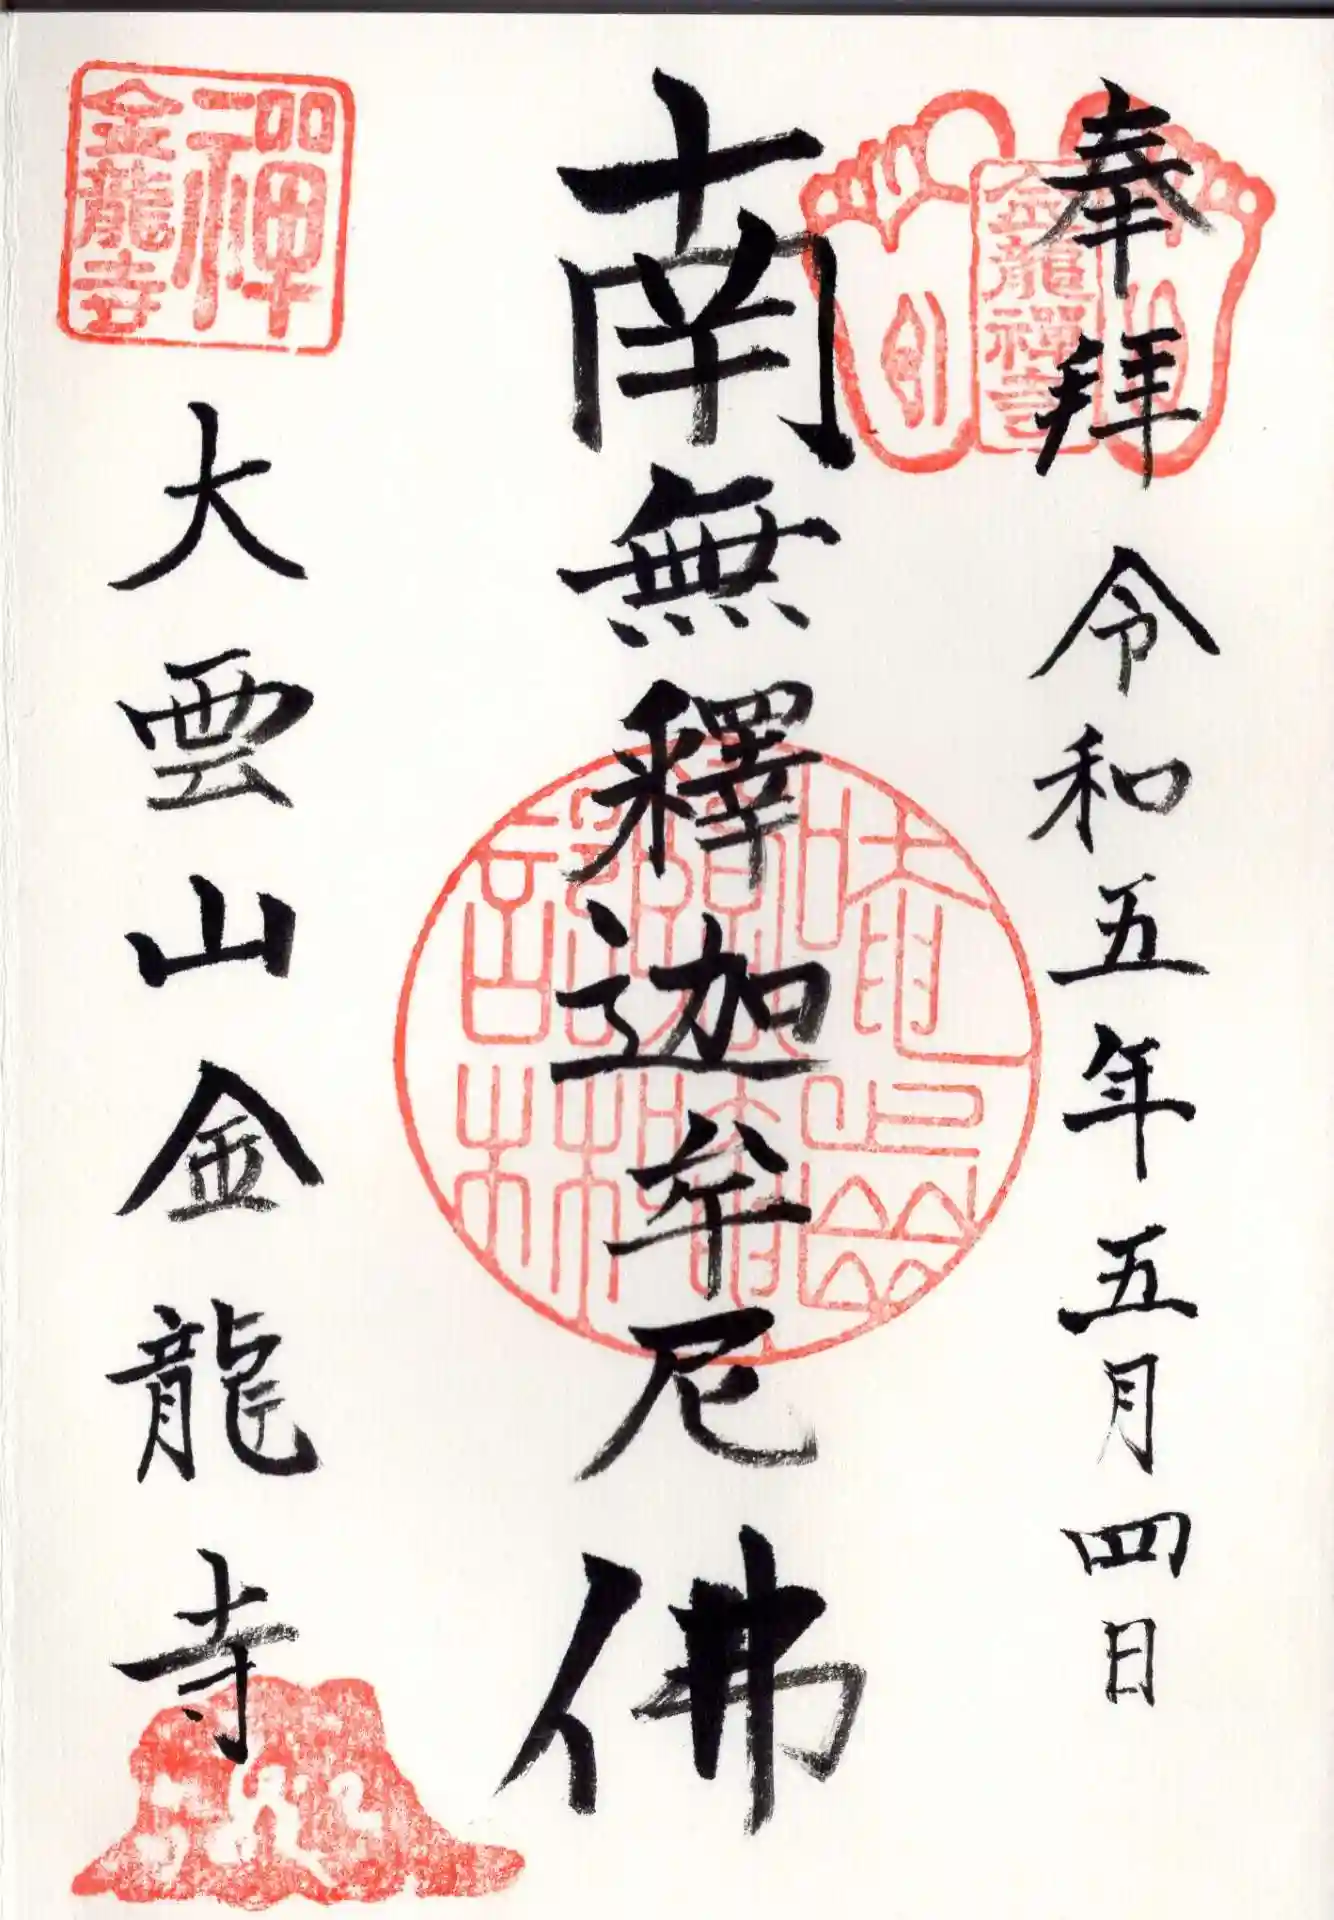 奉拝 令和五年五月四日
金龍禅寺
南無釋迦牟尼佛
禅
金龍寺
大雲山金龍寺